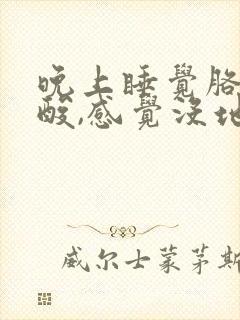 晚上睡覺胳
酸,感覺沒地
威尔士蒙茅斯